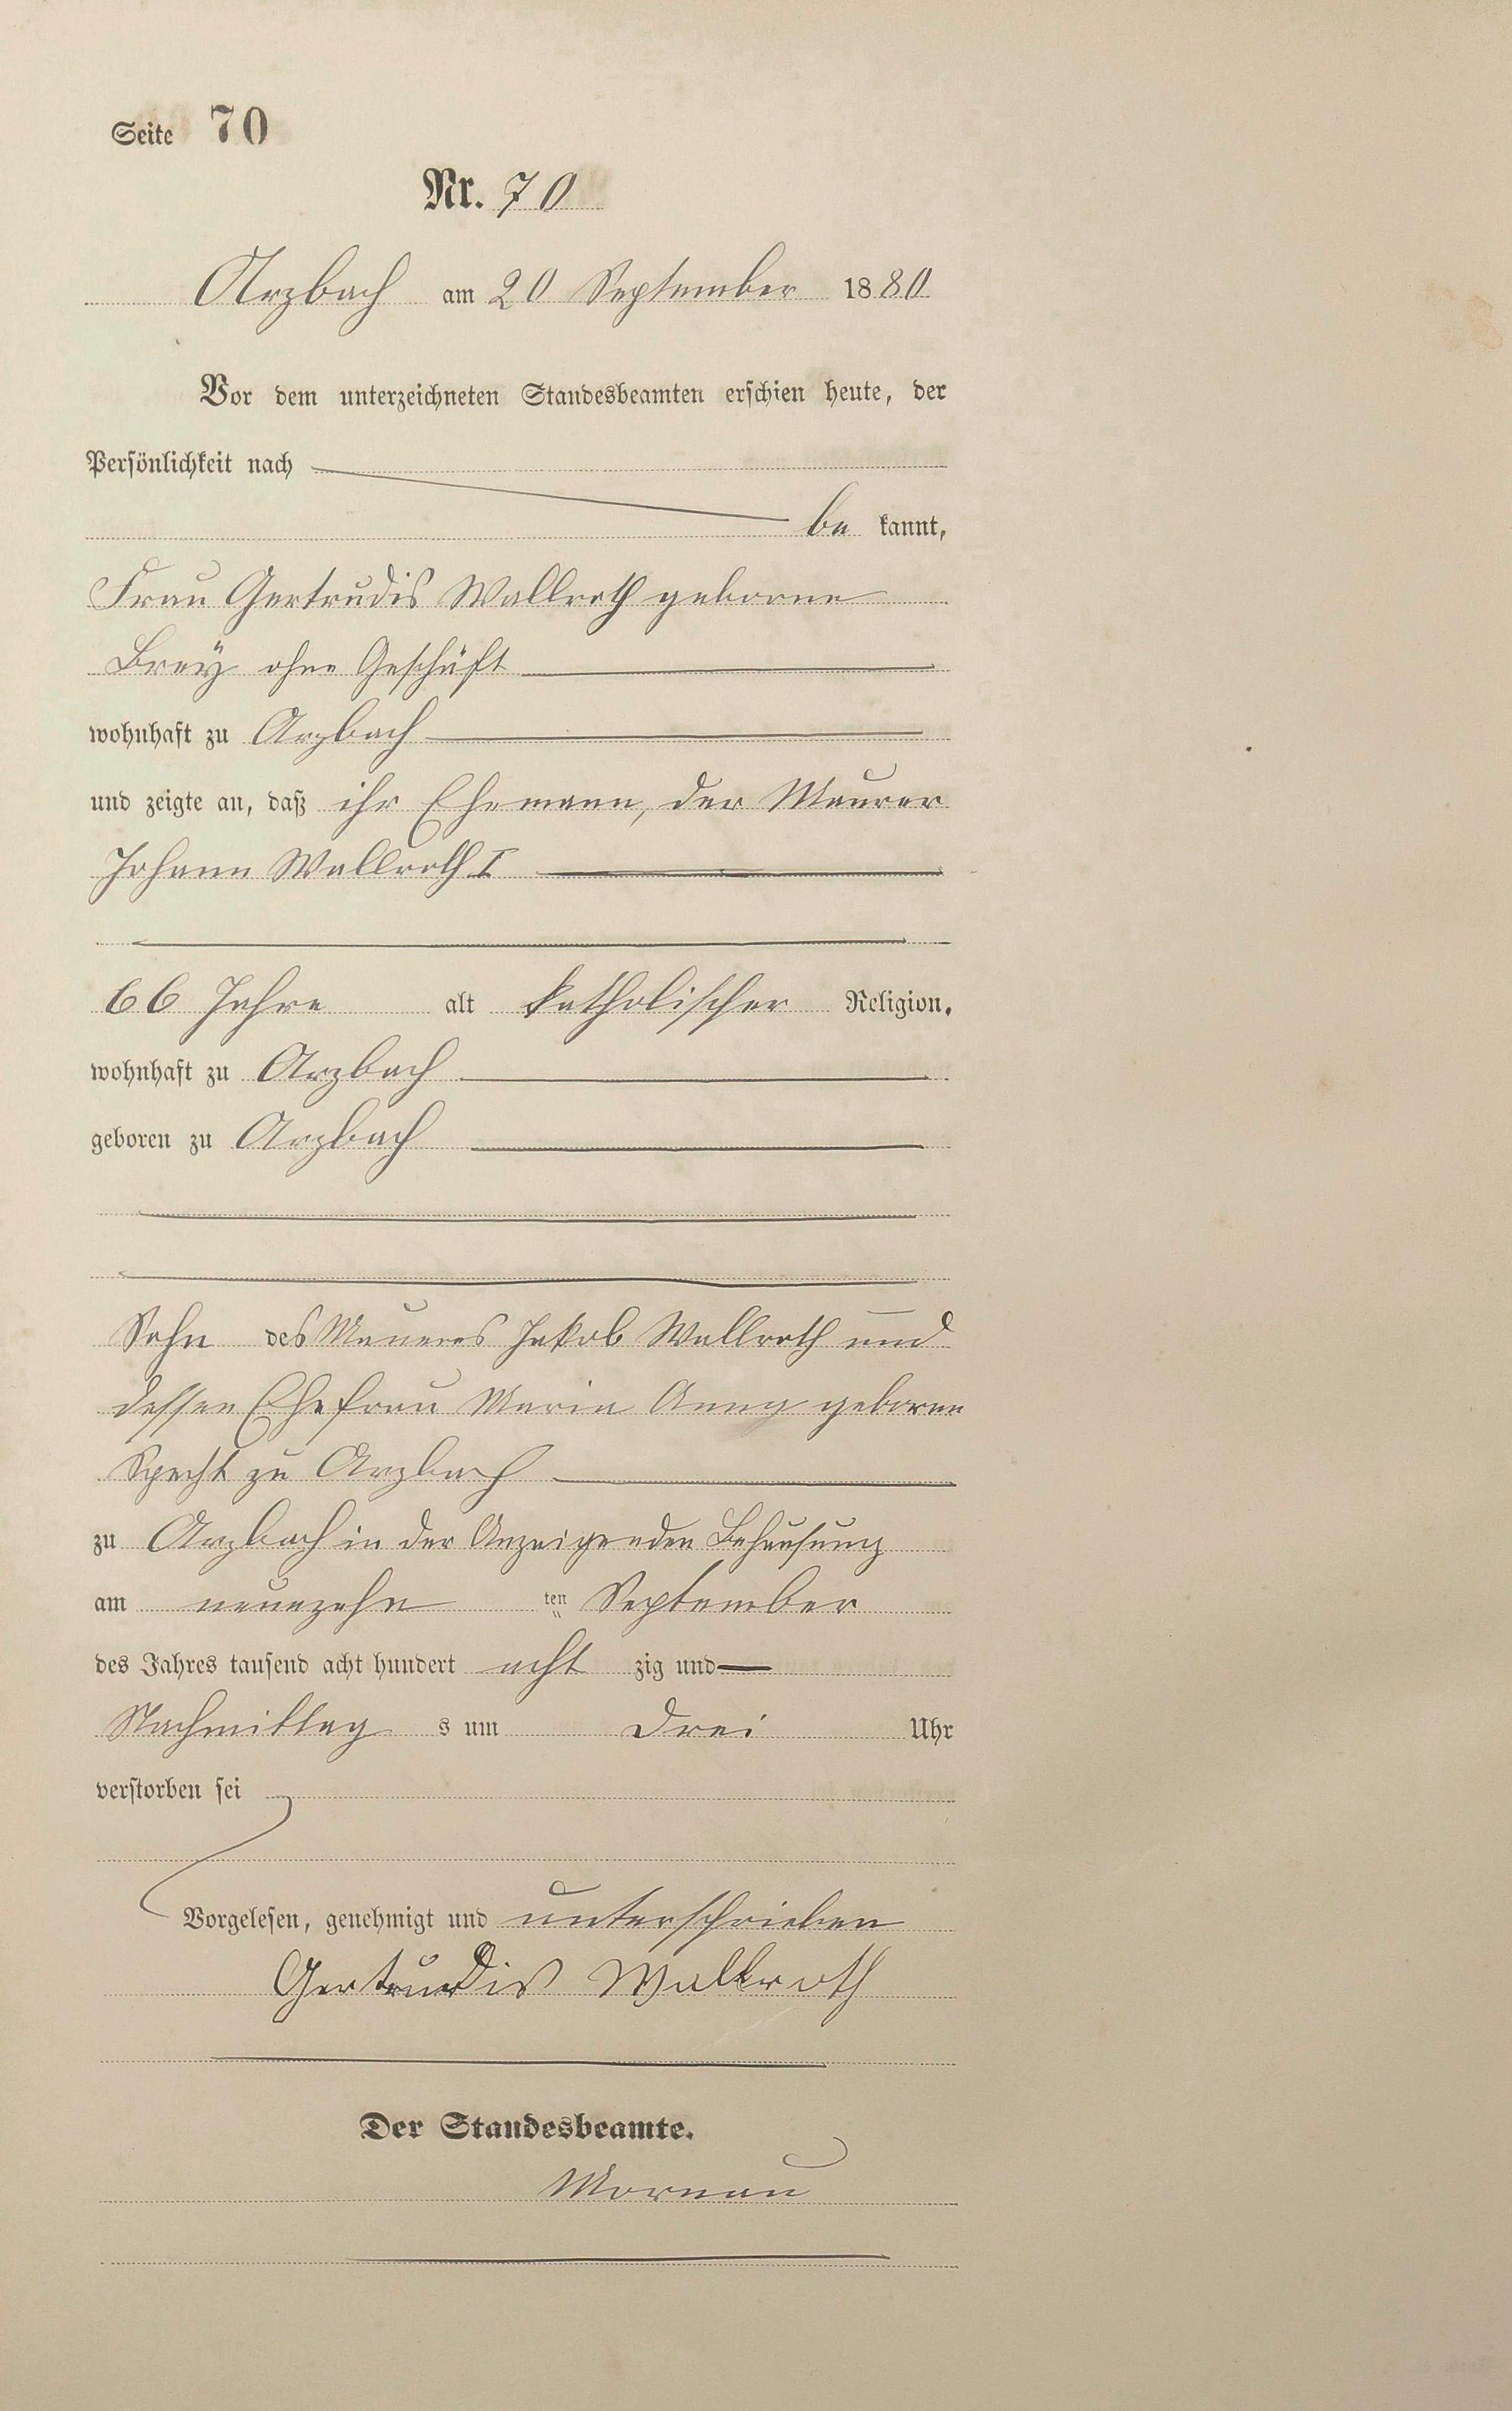 Seite 70
Nr. 70
Arzbach am 20 September 1880
Vor dem unterzeichneten Standesbeamten erschien heute, der
Persönlichkeit nach
be kannt,
Frau Gertrudis Wallroth geborne
Brey ohne Geschäft
wohnhaft zu Arzbach
und zeigte an, daß ihr Ehemann, der Maurer
Johann Wallroth I
66 Jahre alt katholischer Religion,
wohnhaft zu Arzbach
geboren zu Arzbach
Sohn des Maurers Jakob Wallroth und
dessen Ehefrau Maria Anna geborne
Specht zu Arzbach
zu Arzbach in der Anzeigenden Behausung
am neunzehn ten September
des Jahres tausend acht hundert acht zig und
Nachmittag s um drei Uhr
verstorben sei
Vorgelesen, genehmigt und unterschrieben
Gertrudis Wallroth
Der Standesbeamte.